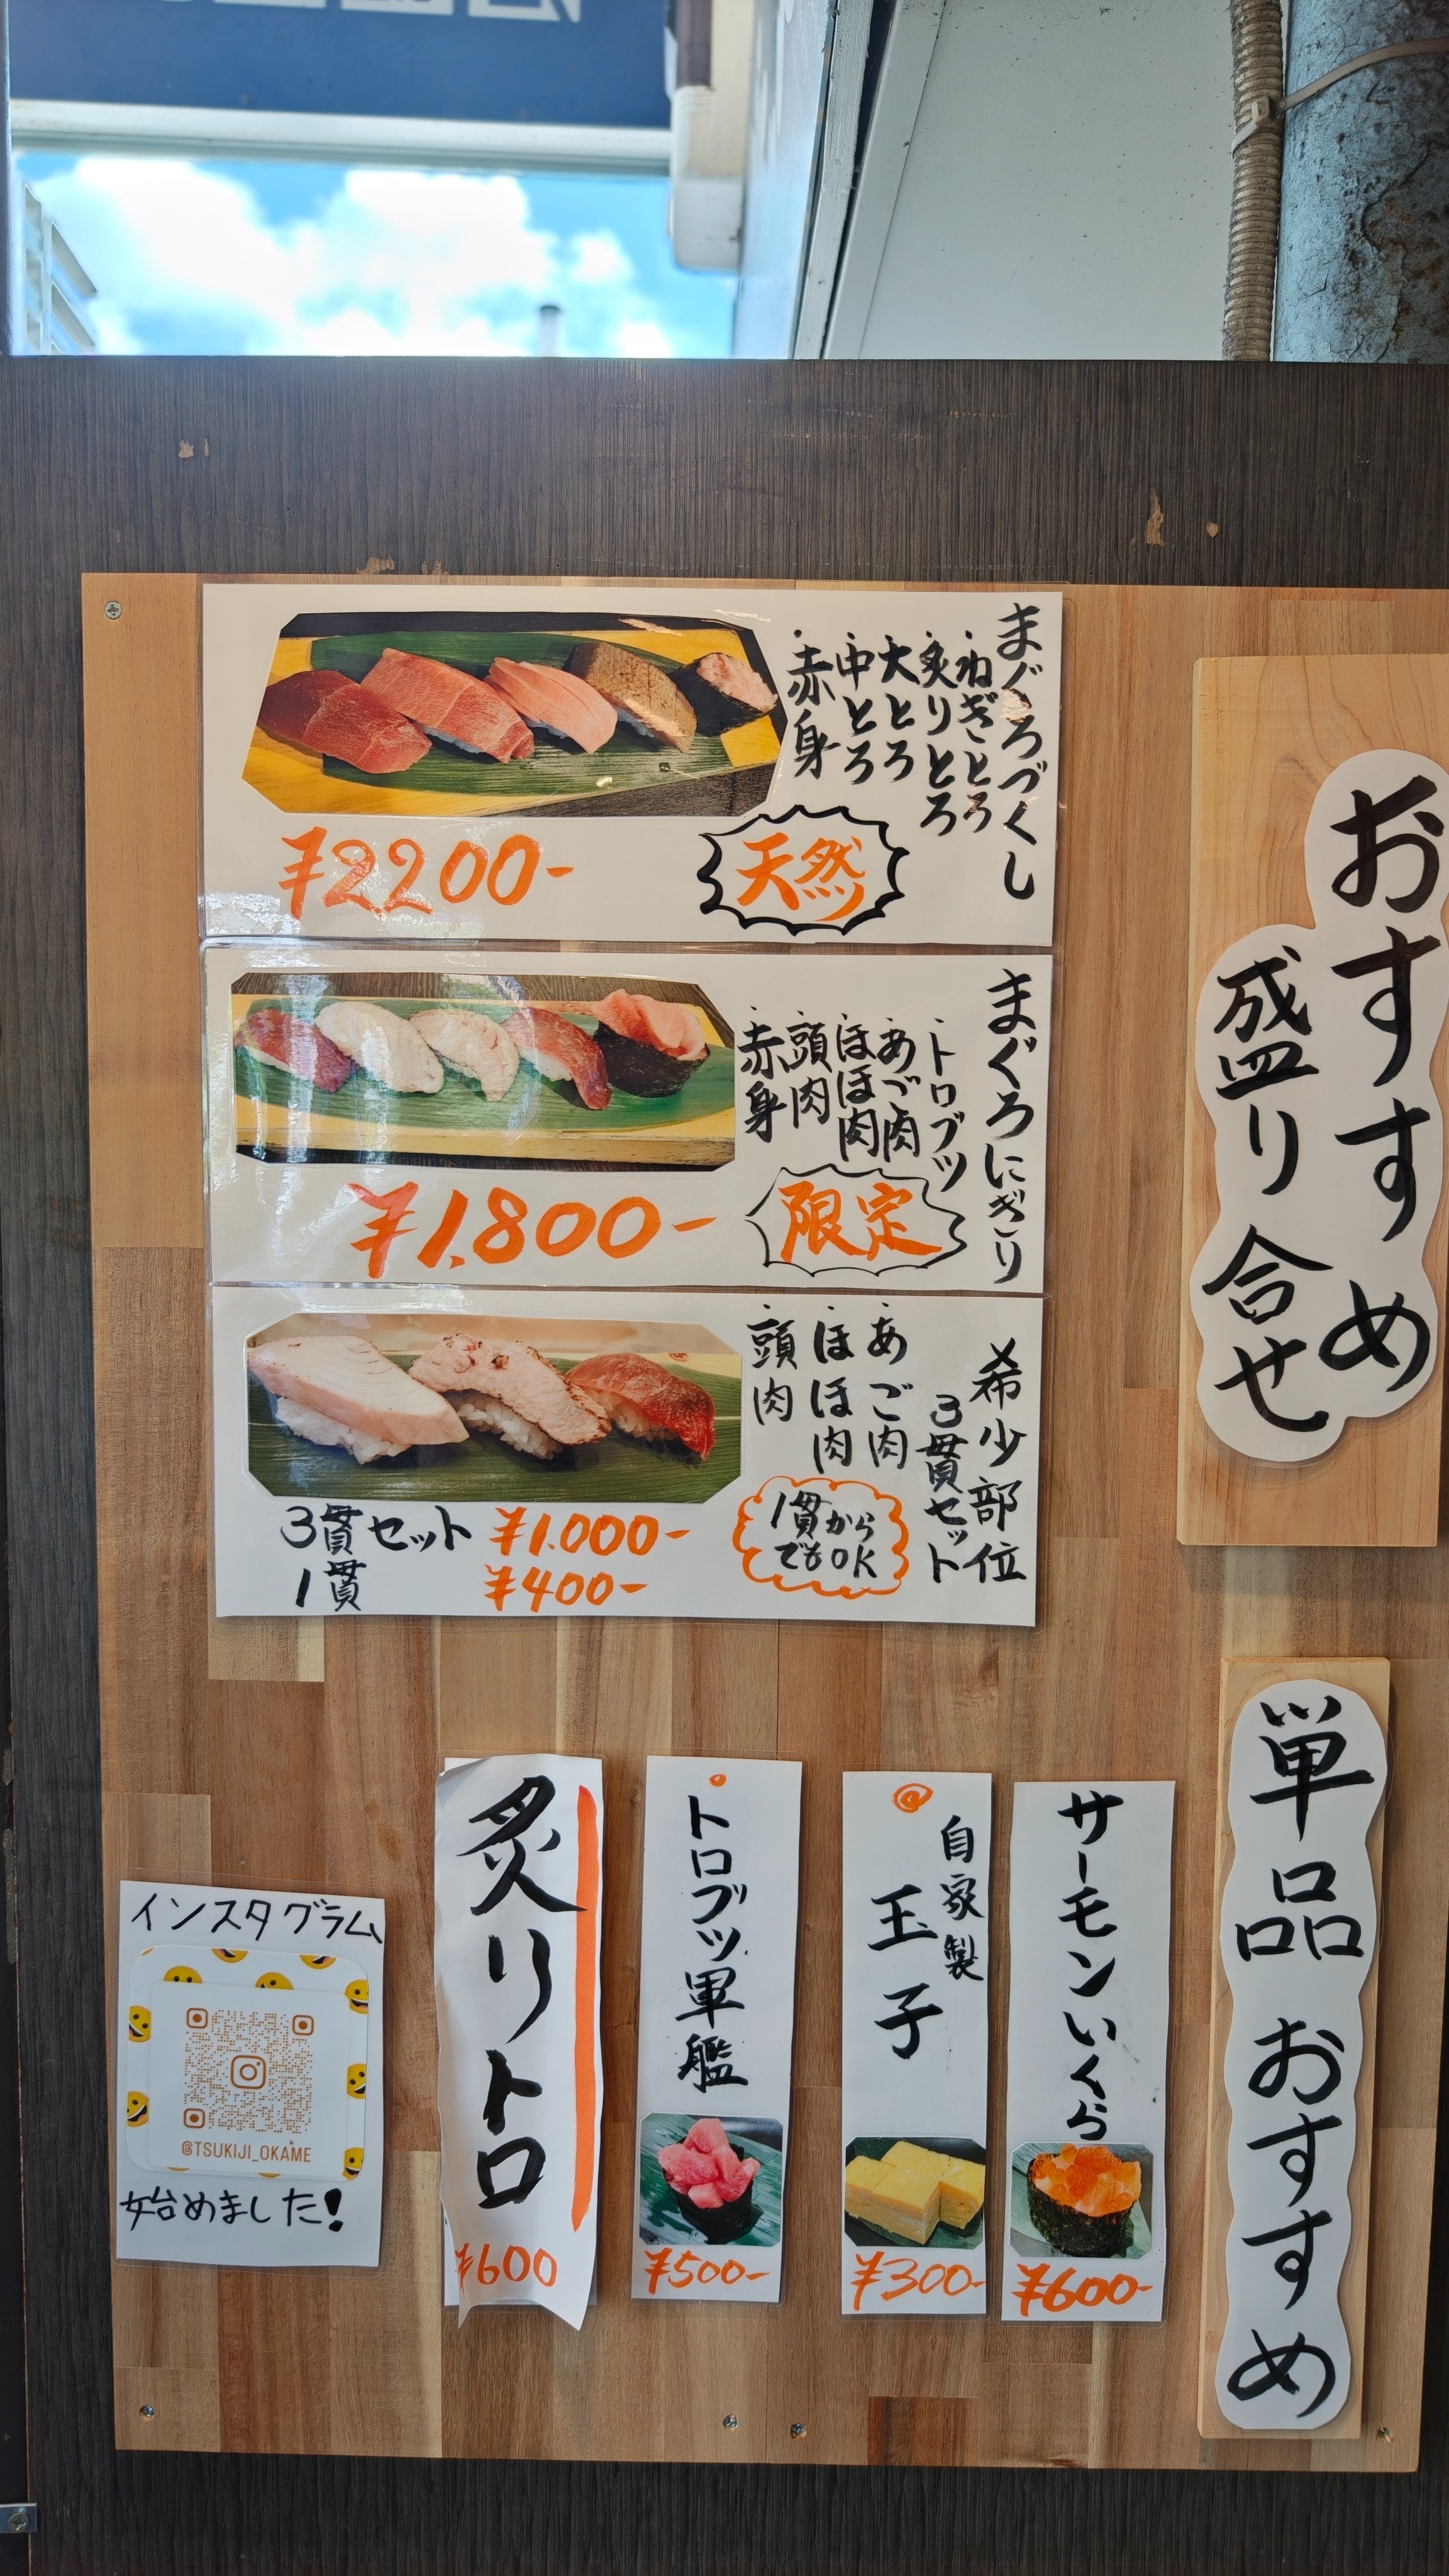 おすすめ
盛り合せ
まぐろづくし
・ねぎとろ
・炙りとろ
・大とろ
・中とろ
・赤身
天然
¥2200-
まぐろにぎり
・トロブツ
・あご肉
・ほほ肉
・頭肉
・赤身
限定
¥1,800-
希少部位
3貫セット
・あご肉
・ほほ肉
・頭肉
1貫から
でもOK
3貫セット ¥1.000-
1貫 ¥400-
単品おすすめ
サーモンいくら
¥600-
自家製
玉子
¥300-
トロブツ軍艦
¥500-
炙りトロ
¥600
インスタグラム
@TSUKIJI_OKAME
始めました!